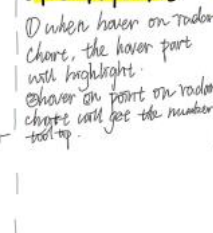 ① when hover on radar
chart, the hover part
will highlight.
② hover on point on radar
chart will get the number
tool tip.